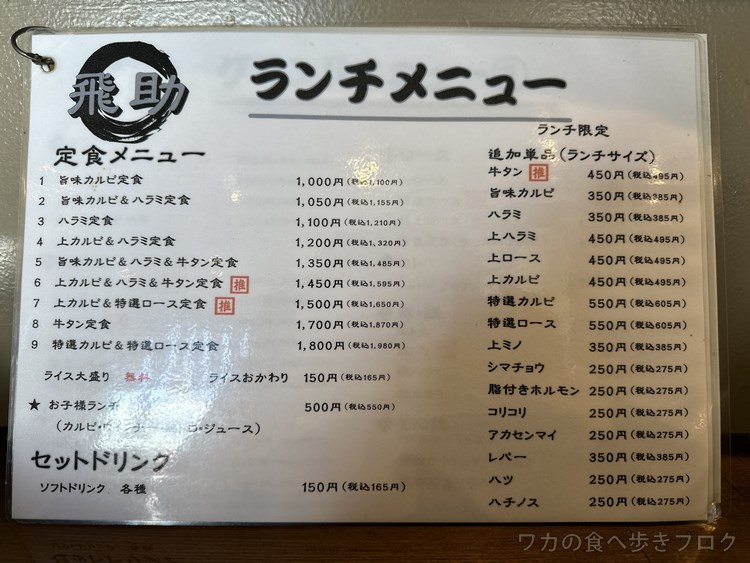 飛助
ランチメニュー
定食メニュー
1 旨味カルビ定食 1,000円(税込1,100円)
2 旨味カルビ&ハラミ定食 1,050円(税込1,155円)
3 ハラミ定食 1,100円(税込1,210円)
4 上カルビ&ハラミ定食 1,200円(税込1,320円)
5 旨味カルビ&ハラミ&牛タン定食 1,350円(税込1,485円)
6 上カルビ&ハラミ&牛タン定食 推 1,450円(税込1,595円)
7 上カルビ&特選ロース定食 推 1,500円(税込1,650円)
8 牛タン定食 1,700円(税込1,870円)
9 特選カルビ&特選ロース定食 1,800円(税込1,980円)
ライス大盛り 無料 ライスおかわり 150円(税込165円)
★ お子様ランチ 500円(税込550円)
(カルビ・ウインナー・ ・ジュース)
セットドリンク
ソフトドリンク 各種 150円(税込165円)
ランチ限定
追加単品(ランチサイズ)
牛タン 推 450円(税込495円)
旨味カルビ 350円(税込385円)
ハラミ 350円(税込385円)
上ハラミ 450円(税込495円)
上ロース 450円(税込495円)
上カルビ 450円(税込495円)
特選カルビ 550円(税込605円)
特選ロース 550円(税込605円)
上ミノ 350円(税込385円)
シマチョウ 250円(税込275円)
脂付きホルモン 250円(税込275円)
コリコリ 250円(税込275円)
アカセンマイ 250円(税込275円)
レバー 350円(税込385円)
ハツ 250円(税込275円)
ハチノス 250円(税込275円)
ワカの食べ歩きブログ